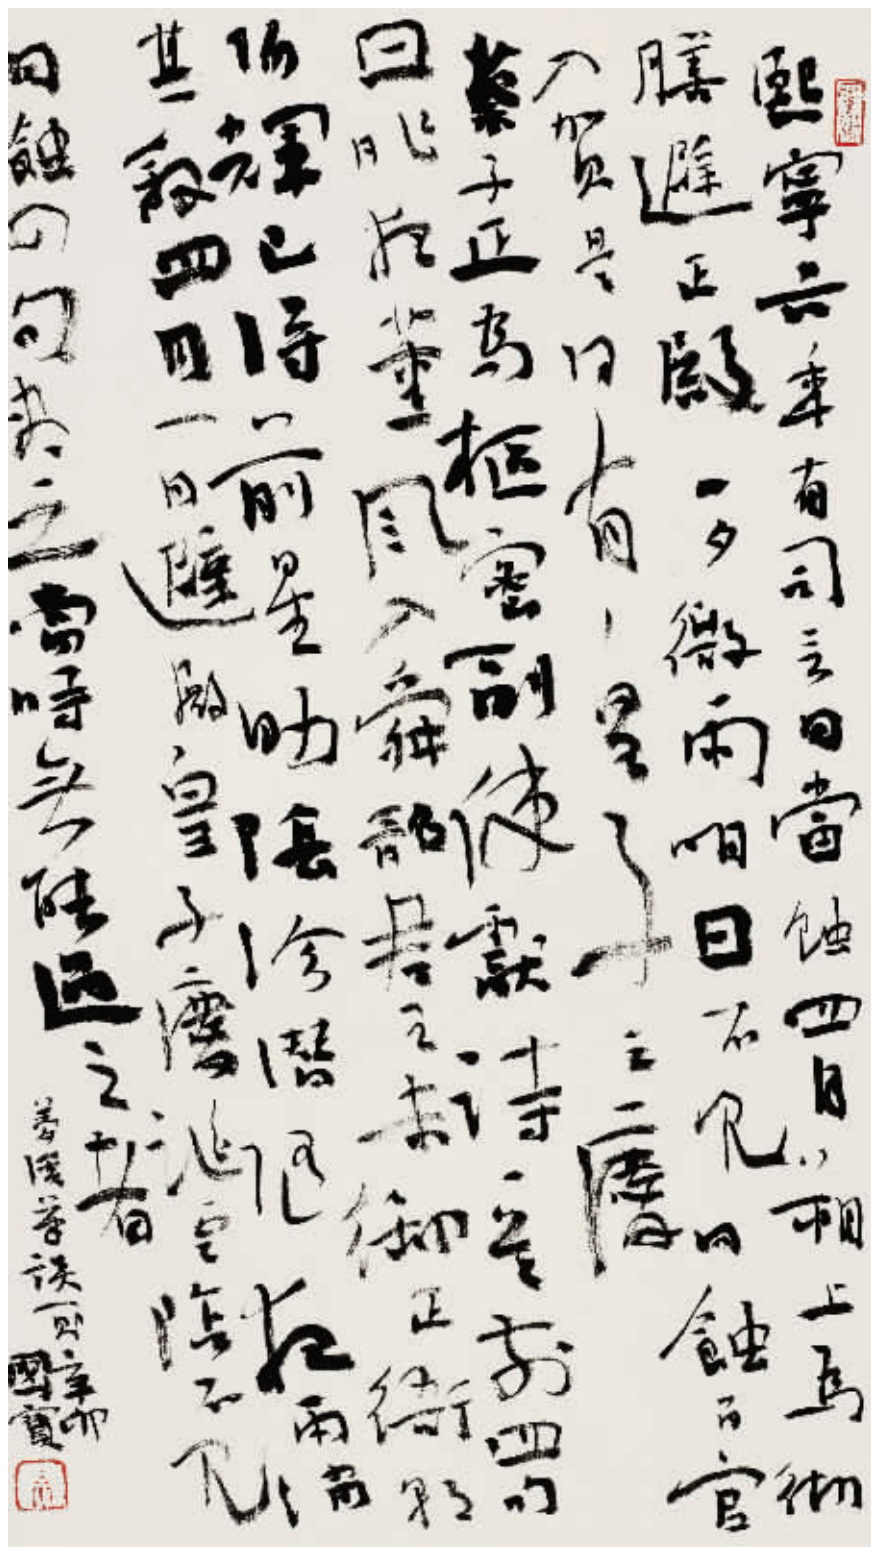 熙寧六年有司言日當蝕四月朔上為徹
膳避正殿一夕微雨明日不見日蝕百官
入賀是日有皇子之慶
蔡子正為樞密副使獻詩一首前四句
曰昨夜薰風入舜韶君王未御正衙朝
陽輝已得前星助陰沴潛隨夜雨消
其敘四月一日避殿皇子慶誕雲陰不見
日蝕四句盡之當時無能過之者
夢溪筆談一則辛卯
國寶